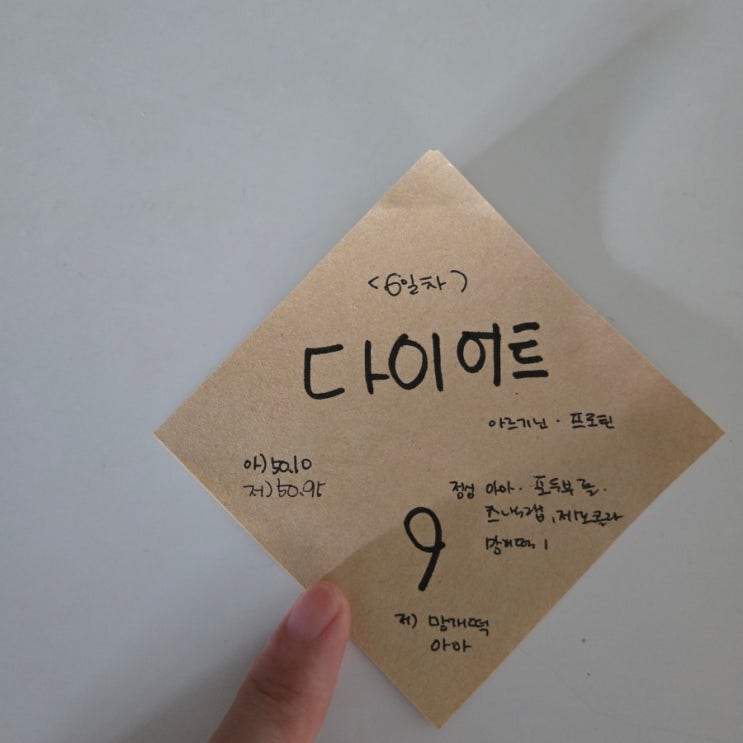 <6일차>
다이어트
아르기닌 · 프로틴
아) 50.10
저) 50.95
점심 아아 · 포두부롤 ·
스낵랩, 제로콜라
망개떡 1
9
저) 망개떡
아아